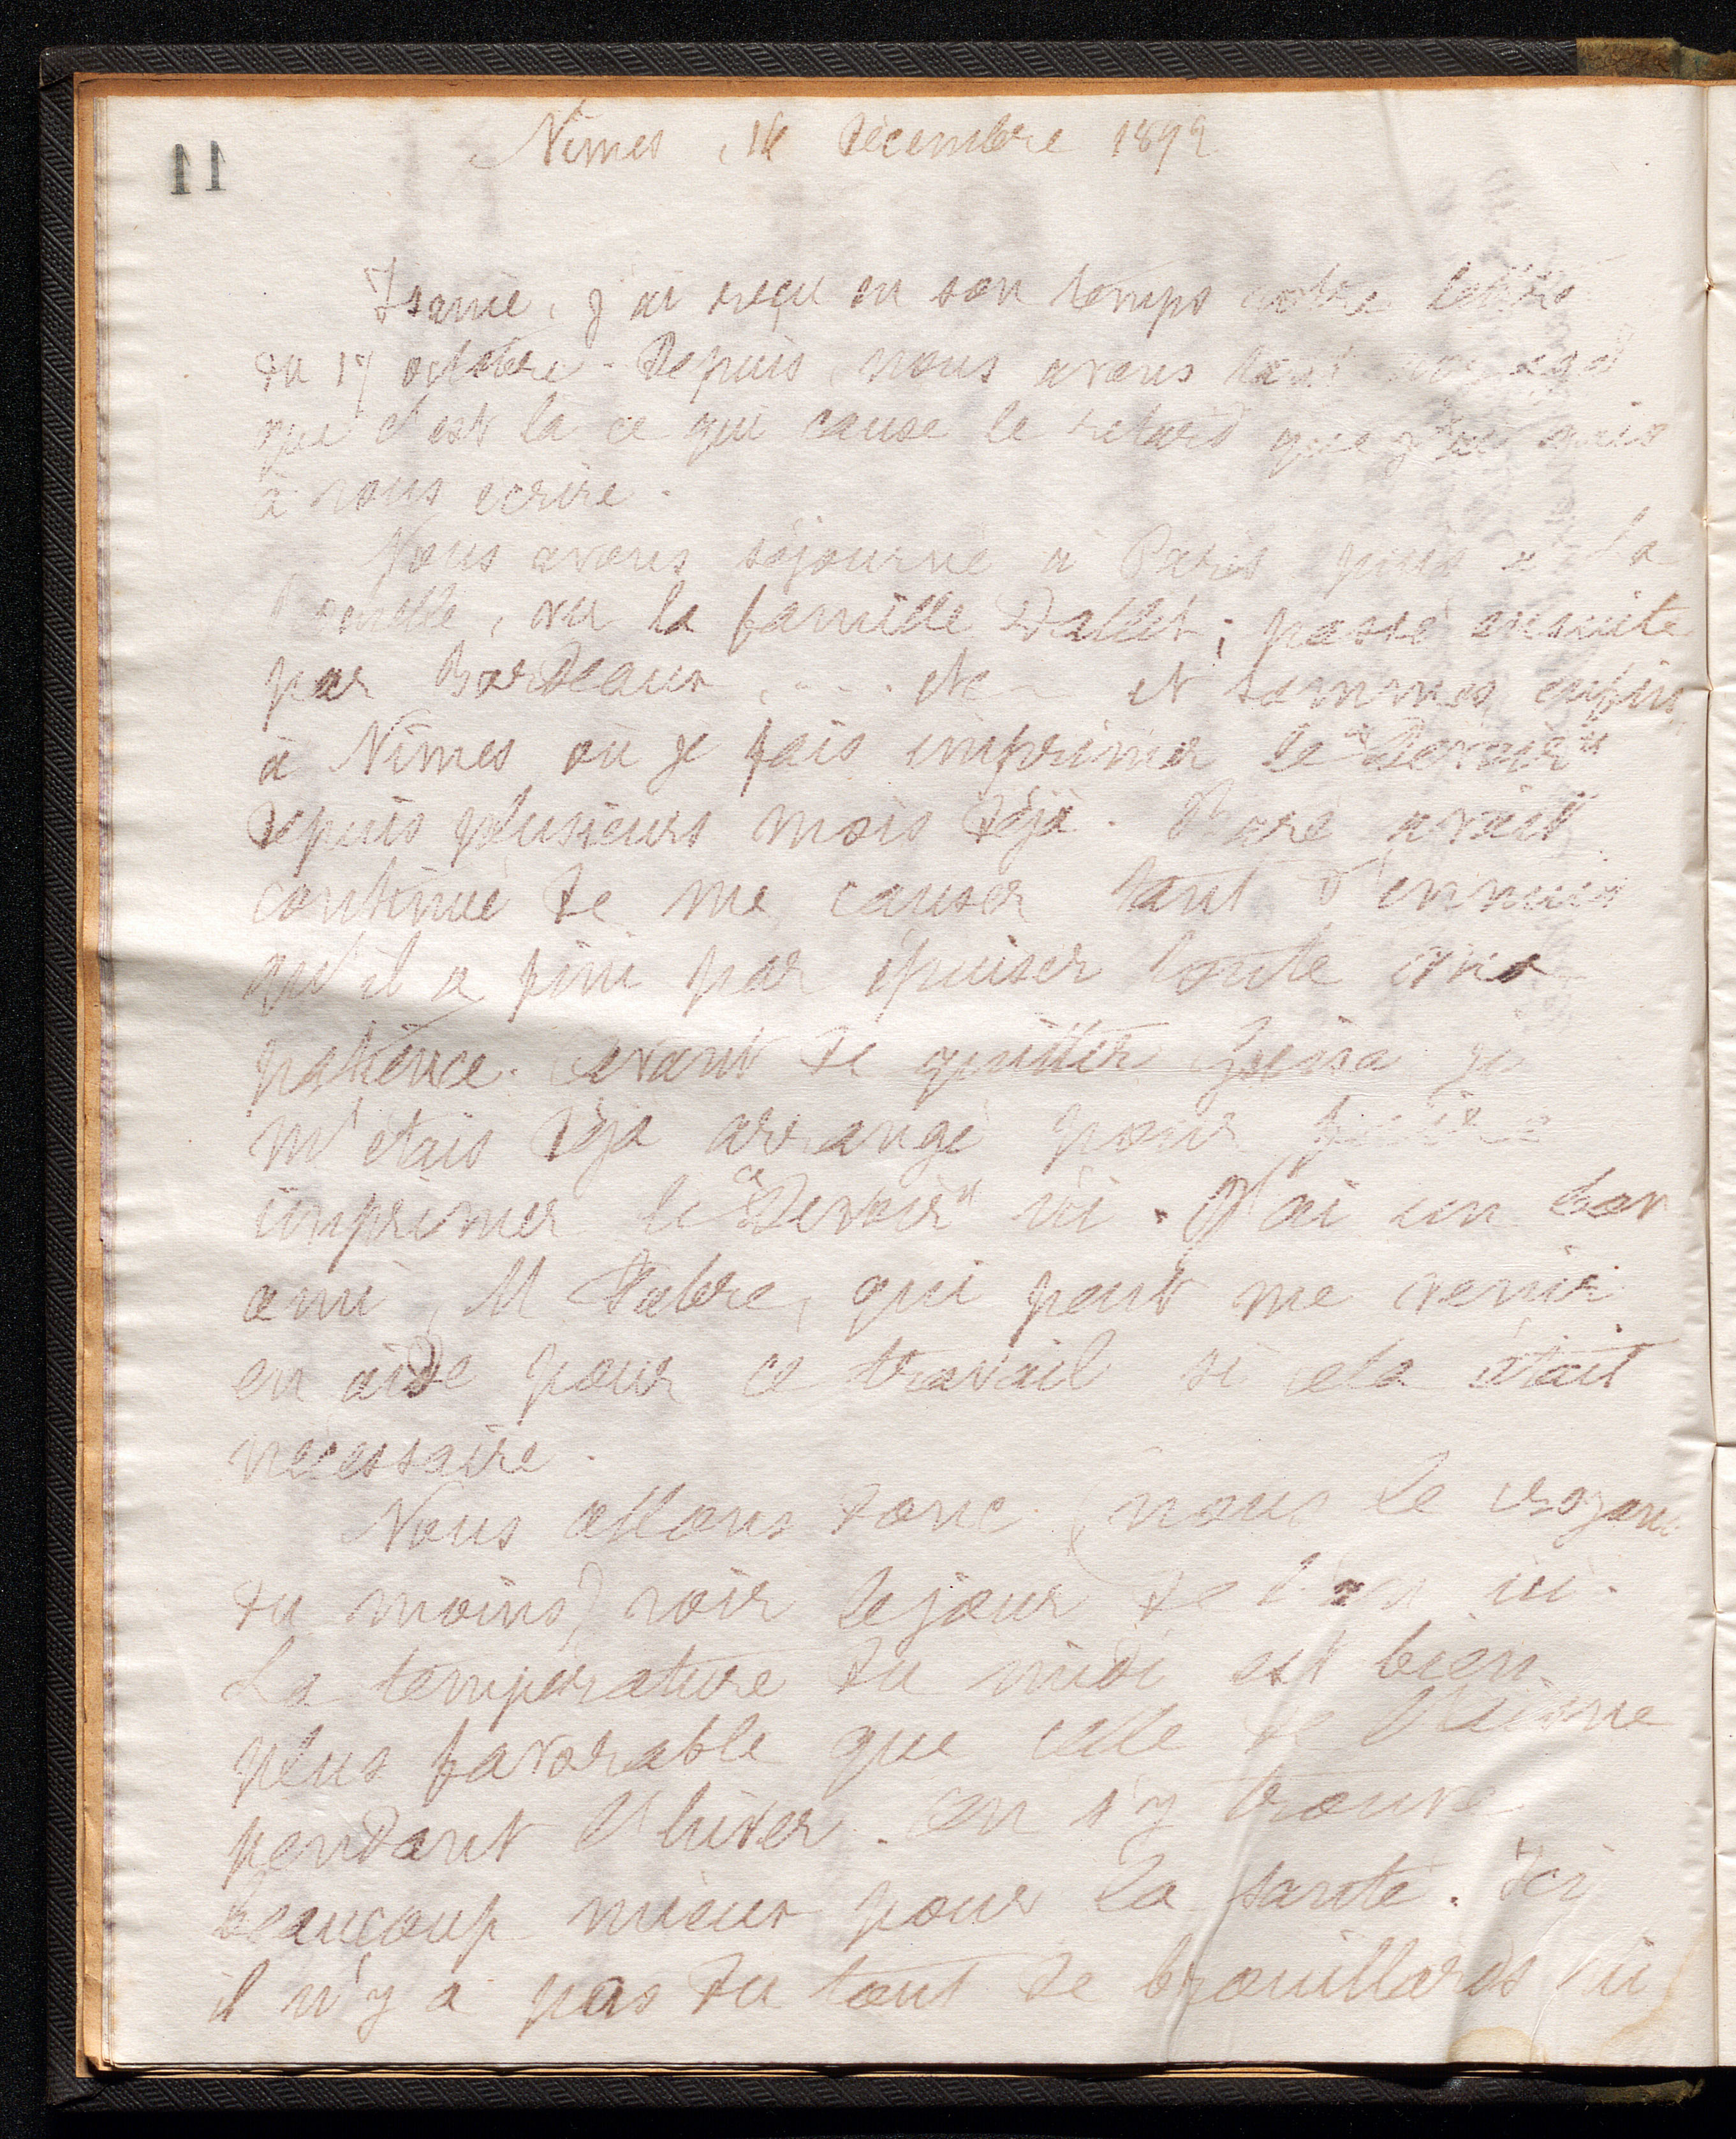 11
Nîmes, 14 Décembre 1892
j'ai reçu en son temps votre lettre
du 17 octobre. Depuis, nous avons
que c'est là ce qui cause le retard que j'ai mis
à vous écrire.
Nous avons séjourné à Paris puis à La
vu la famille Dallet; passé ensuite
par Bordeaux, .... etc et sommes enfin
à Nîmes où je fais imprimer le "Devoir"
depuis plusieurs mois déjà. avait
continué de me causer tant d'ennuis
qu'il a fini par épuiser toute ma
patience. Avant de quitter Guise je
m'étais déjà arrangé pour faire
imprimer le "Devoir" ici. J'ai un bon
ami, M Fabre, qui peut me venir
en aide pour ce travail si cela était
nécessaire.
Nous allons donc (nous le croyons
du moins) voir le jour de l'an ici.
La température du midi est bien
plus favorable que celle de l'Aisne
pendant l'hiver. On s'y trouve
beaucoup mieux pour la santé. Ici
il n'y a pas du tout de brouillards ni